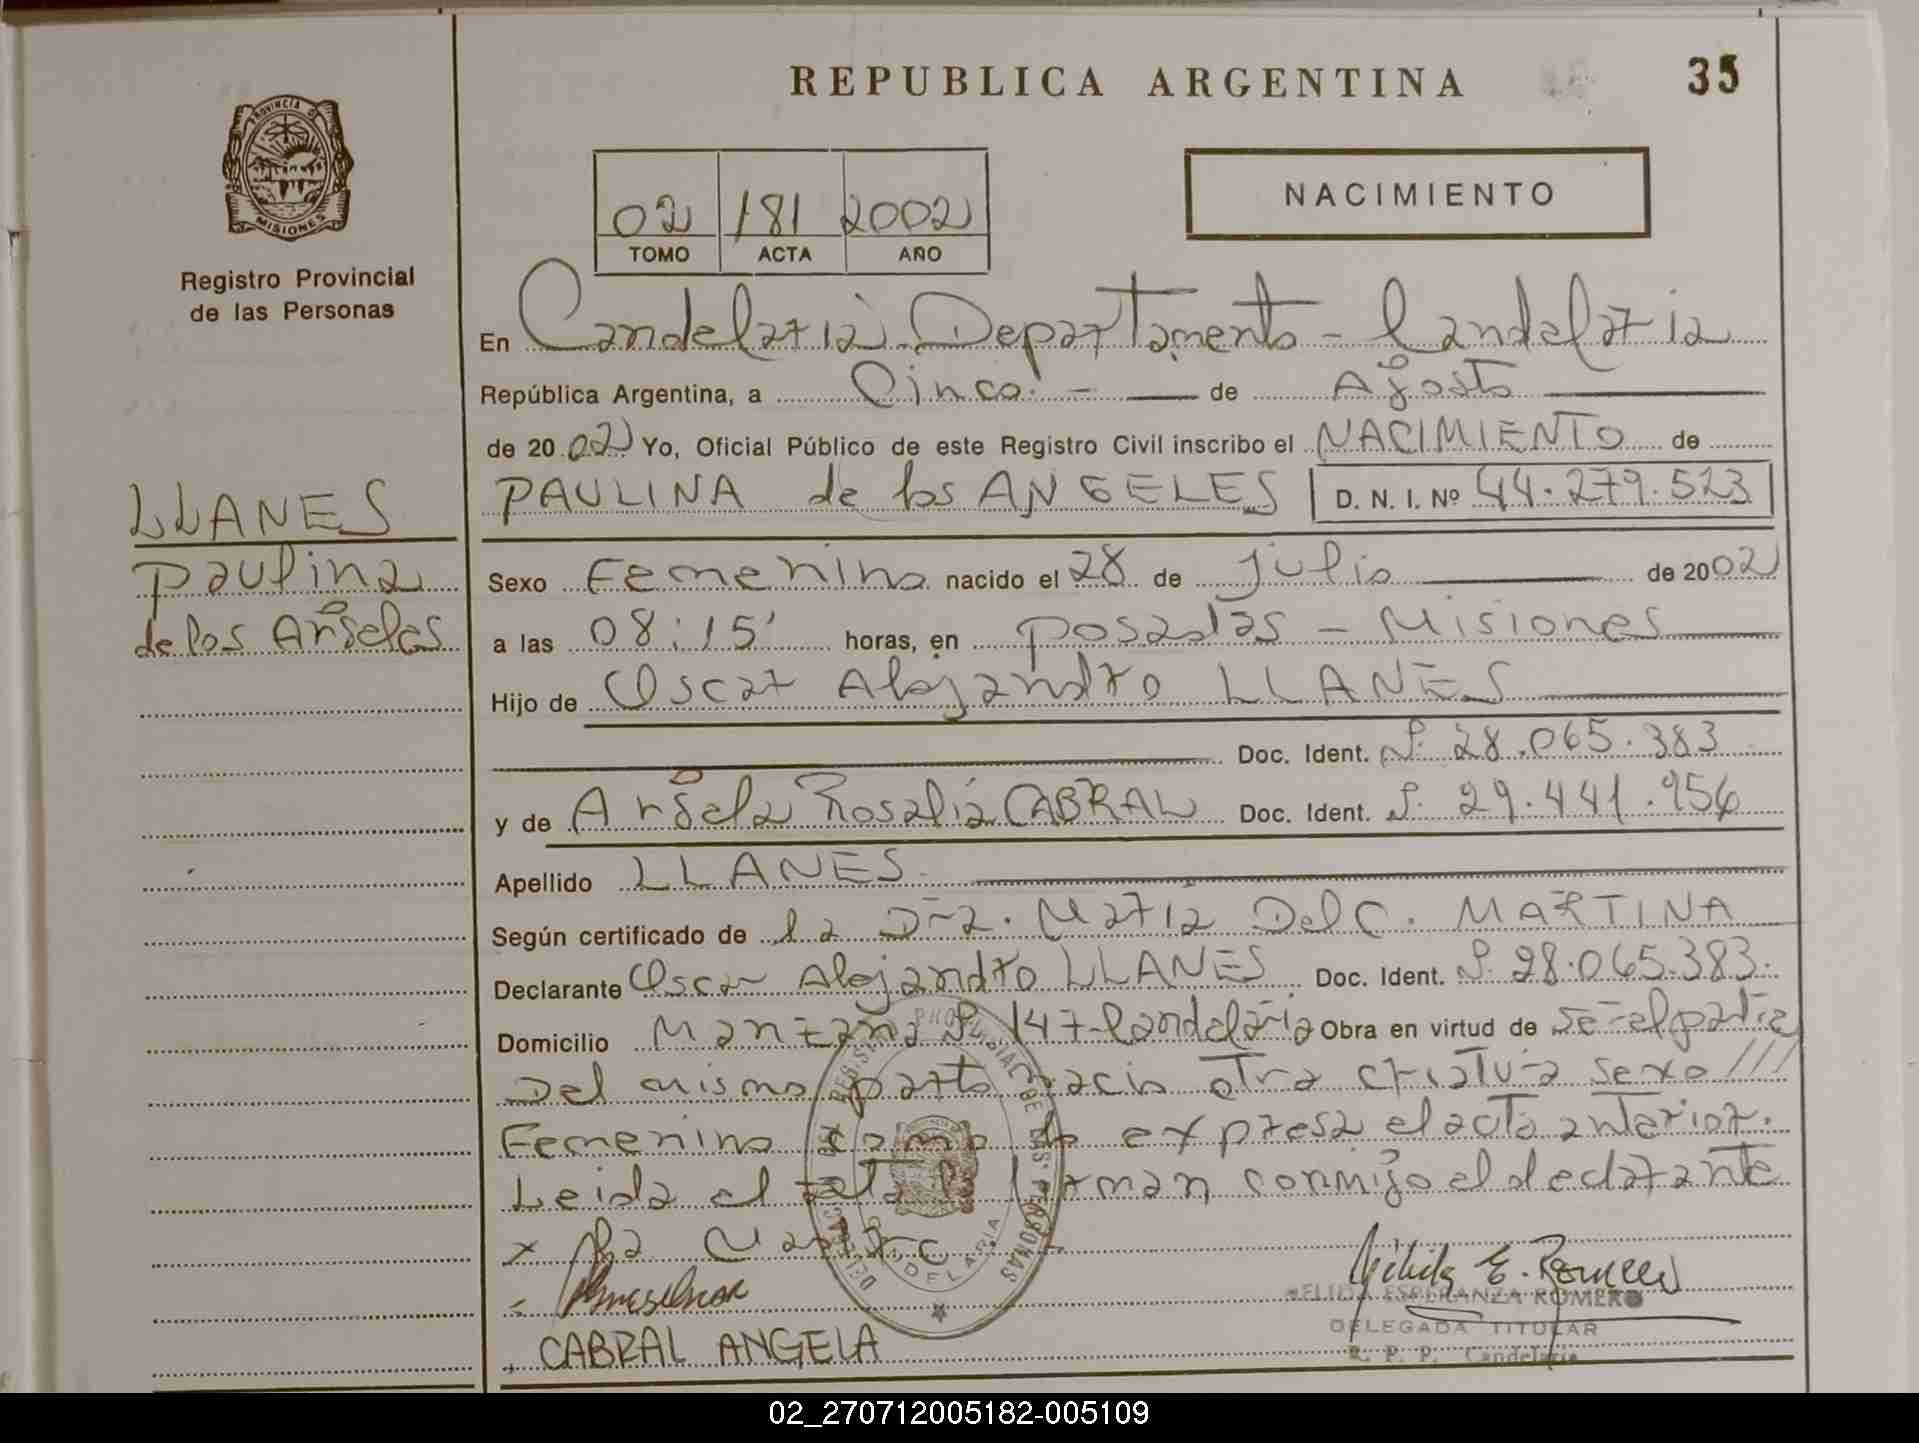 REPUBLICA ARGENTINA
35
PROVINCIA D
MISIONES
Registro Provincial
de las Personas
02 181 2002
TOMO ACTA AÑO
NACIMIENTO
En Candelaria Departamento - Candelaria
República Argentina, a Cinco.- de Agosto
de 20 02 Yo, Oficial Público de este Registro Civil inscribo el NACIMIENTO de
PAULINA de los ANGELES D. N. I. Nº 44.279.523
LLANES
Paulina
de los Angeles
Sexo Femenino nacido el 28 de Julio de 2002
a las 08:15' horas, en posadas - Misiones
Hijo de Oscar Alejandro LLANES
Doc. Ident. 28.065.383
y de Angela Rosalia CABRAL Doc. Ident. 29.441.956
Apellido LLANES
Según certificado de la Dra. Maria Del C. MARTINA
Declarante Oscar Alejandro LLANES Doc. Ident. 28.065.383.
Domicilio Manzana 147-Candelaria Obra en virtud de ser el padre
Del mismo parto nacio otra criatura sexo ///
Femenino como lo expresa el acta anterior.
Leida el acta la firman conmigo el declarante
x la Madre
CABRAL ANGELA
DELEGACION REGISTRO PROVINCIAL DE LAS PERSONAS
CANDELARIA
Nélida E. Romero
NELIDA ESPERANZA ROMERO
DELEGADA TITULAR
R. P. P. Candelaria
02_270712005182-005109